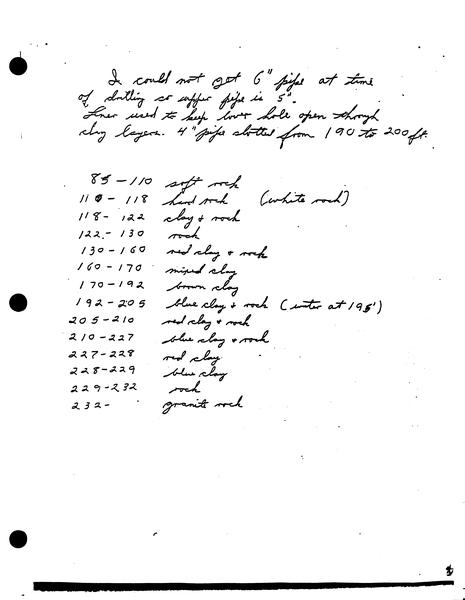 I could not get 6" pipe at time
of drilling so upper pipe is 5".
Liner used to keep lower hole open through
clay layers. 4" pipe slotted from 190 to 200 ft.
85-110 soft rock
110-118 hard rock (white rock)
118-122 clay & rock
122-130 rock
130-160 red clay & rock
160-170 mixed clay
170-192 brown clay
192-205 blue clay & rock (water at 195')
205-210 red clay & rock
210-227 blue clay & rock
227-228 red clay
228-229 blue clay
229-232 rock
232- granite rock